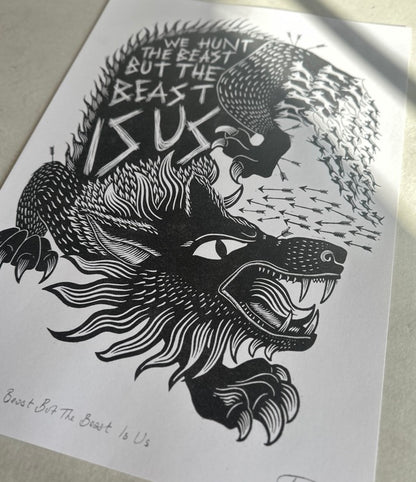 WE HUNT
THE BEAST
BUT THE
BEAST
IS US
Beast But The Beast Is Us